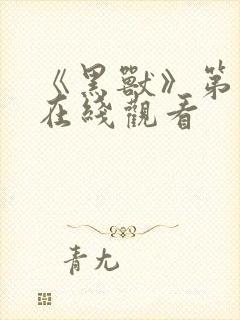 《黑獸》第
在綫觀看
青尢